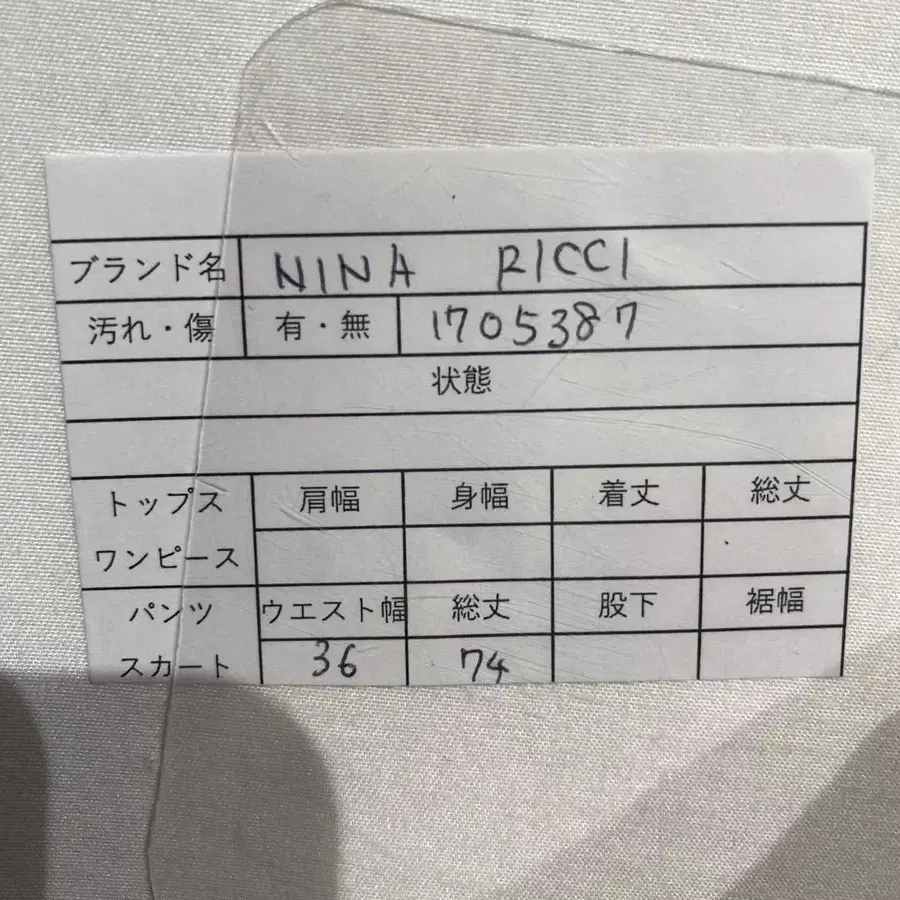 ブランド名 NINA RICCI
汚れ・傷 有・無 1705387
状態
トップス 肩幅 身幅 着丈 総丈
ワンピース
パンツ ウエスト幅 総丈 股下 裾幅
スカート 36 74